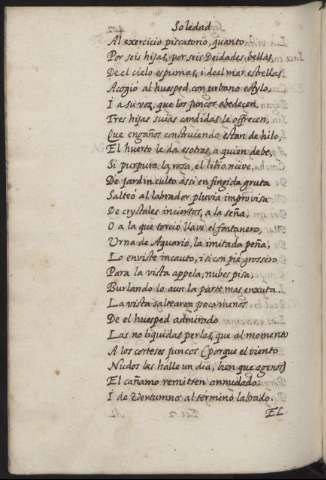 Soledad
Al exercicio piscatorio, quanto
Por seis hijas, por seis Deidades bellas,
De el cielo espumas, i de el mar estrellas.
Acogió al huesped, con urbano estylo,
I a su voz, que los juncos obedecen,
Tres hijas suias candidas le offrecen,
Que engaños construiendo estan de hilo,
El huerto le da esotras, a quien debe,
Si purpura la rosa, el lilio nieve,
De jardin culto assi en fingida gruta
Salteó al labrador pluvia improvisa
De crystales inciertos, a la seña,
O a la que torció llave el fontanero,
Urna de Aquario, la imitada peña,
Lo enviste incauto, i si con pie grossero
Para la vista appela, nubes pisa,
Burlando lo aun la parte mas enxuta.
La vista saltearon poco menos
De el huesped admirado
Las no liquidas perlas, que al momento
A los corteses juncos (porque el viento
Nudos les halle un dia, bien que agenos)
El cañamo remitten annudado:
I de Vertumno al termino labrado.
EL